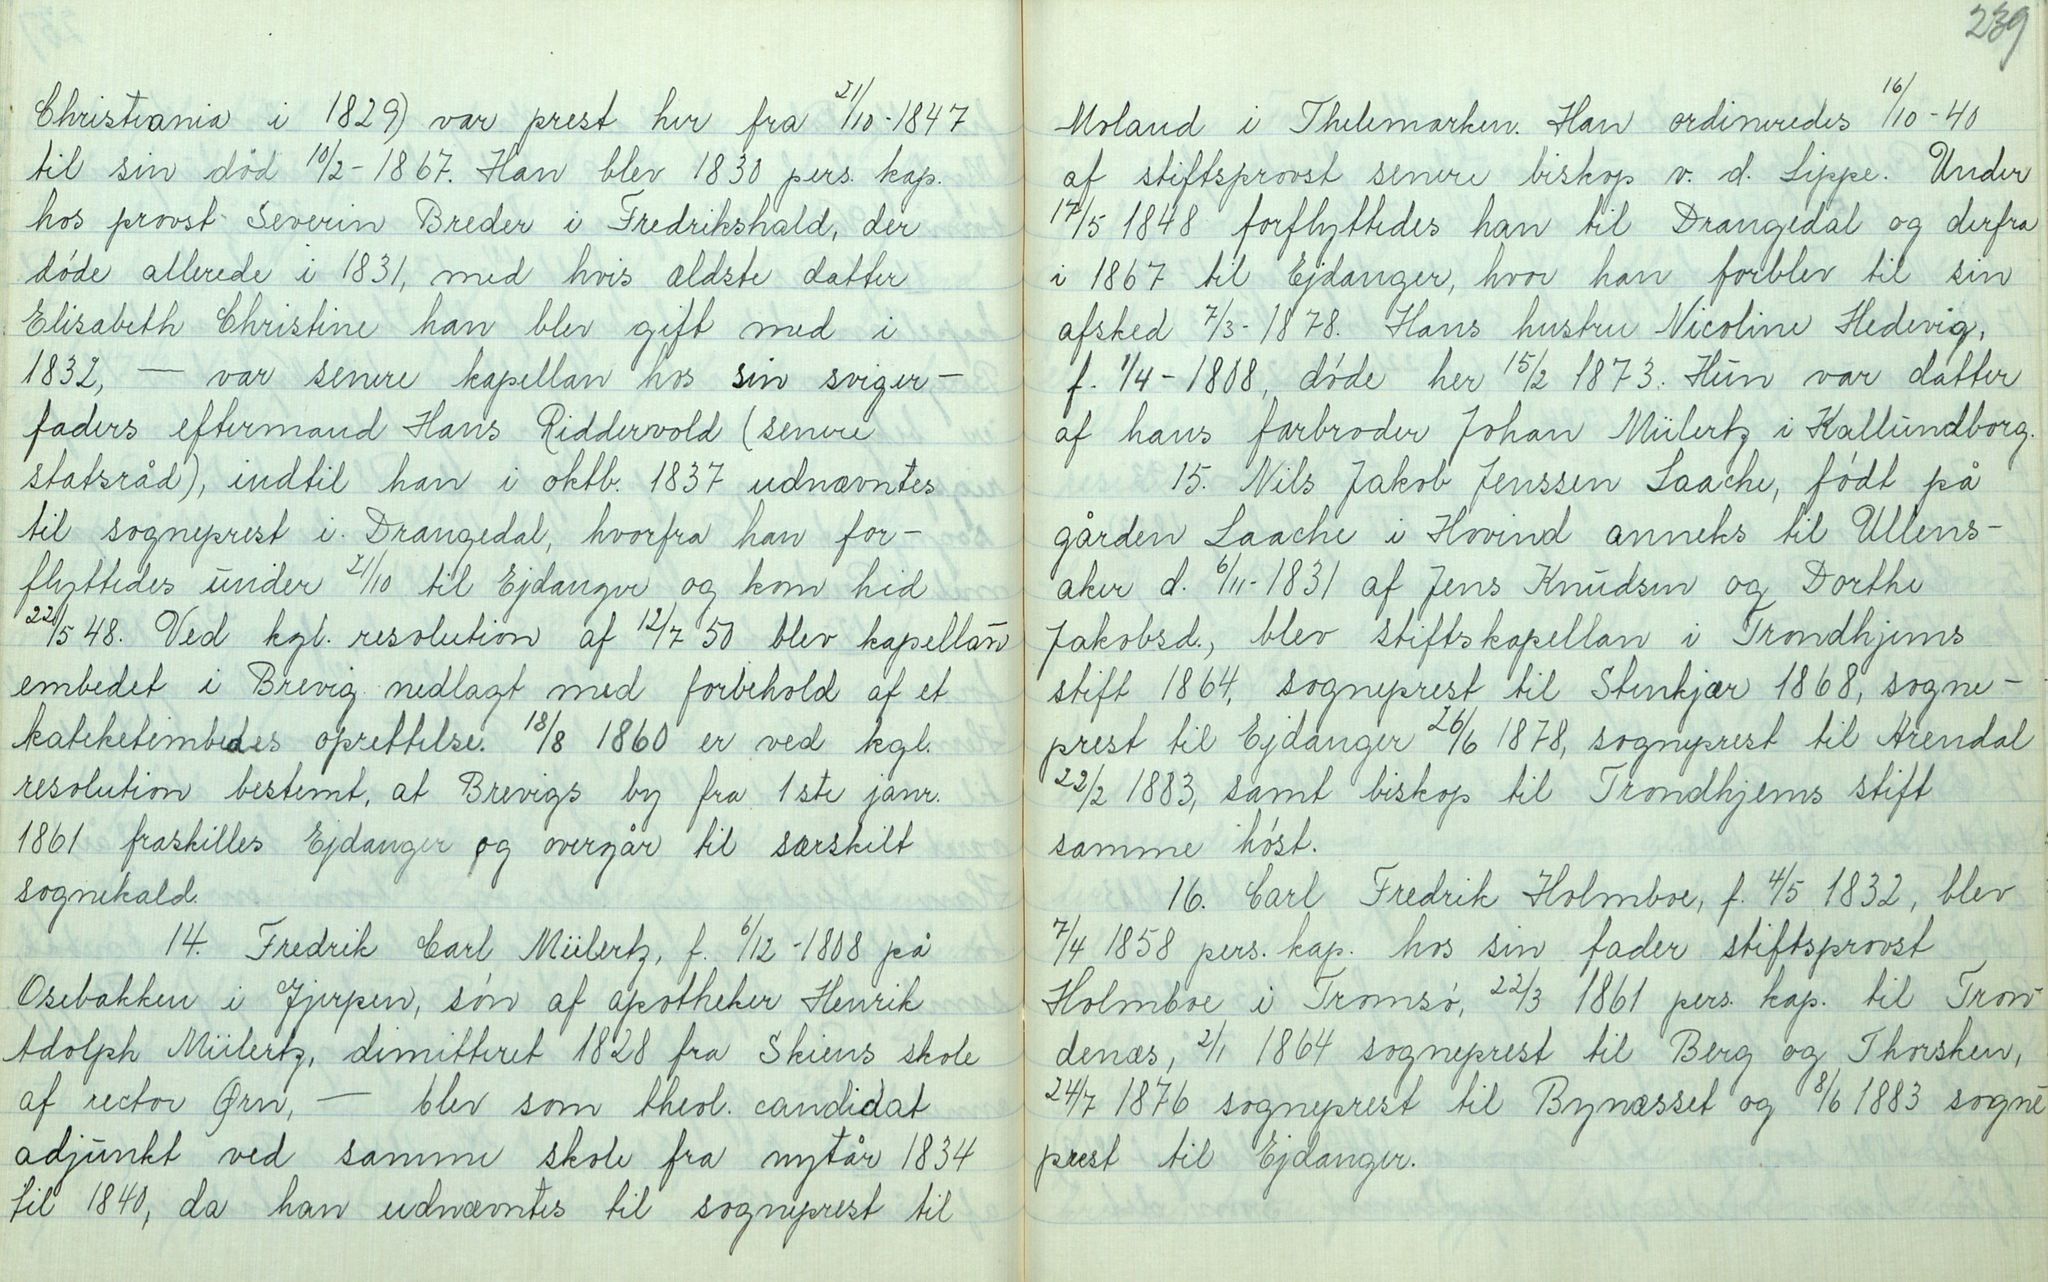 Christiania i 1829) var prest her fra 21/10-1847
til sin død 10/2-1867. Han blev 1830 pers. kap.
hos provst Severin Breder i Fredrikshald, der
døde allerede i 1831, med hvis ældste datter
Elisabeth Christine han blev gift med i
1832, — var senere kapellan hos sin sviger-
faders eftermand Hans Riddervold (senere
statsråd), indtil han i oktb. 1837 udnævntes
til sogneprest i Drangedal, hvorfra han for-
flyttedes under 21/10 til Ejdanger og kom hid
22/5 48. Ved kgl. resolution af 12/7 50 blev kapellan
embedet i Brevig nedlagt med forbehold af et
kateketembedes oprettelse. 18/8 1860 er ved kgl.
resolution bestemt, at Brevigs by fra 1ste janr.
1861 fraskilles Ejdanger og overgår til særskilt
sognekald.
14. Fredrik Carl Mülertz, f. 6/12-1808 på
Osebakken i Gjerpen, søn af apotheker Henrik
Adolph Mülertz, dimitteret 1828 fra Skiens skole
af rector Ørn, — blev som theol. candidat
adjunkt ved samme skole fra nytår 1834
til 1840, da han udnævntes til sogneprest til
239
Moland i Thelemarken. Han ordineredes 16/10-40
af stiftsprovst senere biskop v. d. Lippe. Under
17/5 1848 forflyttedes han til Drangedal og derfra
i 1867 til Ejdanger, hvor han forblev til sin
afsked 7/3-1878. Hans hustru Nicoline Hedevig,
f. 1/4-1808, døde her 15/2 1873. Hun var datter
af hans farbroder Johan Mülertz i Kallundborg.
15. Nils Jakob Jenssen Laache, født på
gården Laache i Hovind anneks til Ullens-
aker d. 6/11-1831 af Jens Knudsen og Dorthe
Jakobsd., blev stiftskapellan i Trondhjems
stift 1864, sogneprest til Stenkjær 1868, sogne-
prest til Ejdanger 26/6 1878, sogneprest til Arendal
22/2 1883, samt biskop til Trondhjems stift
samme høst.
16. Carl Fredrik Holmboe, f. 4/5 1832, blev
7/4 1858 pers. kap. hos sin fader stiftsprovst
Holmboe i Tromsø, 22/3 1861 pers. kap. til Tron-
denæs, 2/1 1864 sogneprest til Berg og Thorsken,
24/7 1876 sogneprest til Bynæsset og 8/6 1883 sogne
prest til Ejdanger.